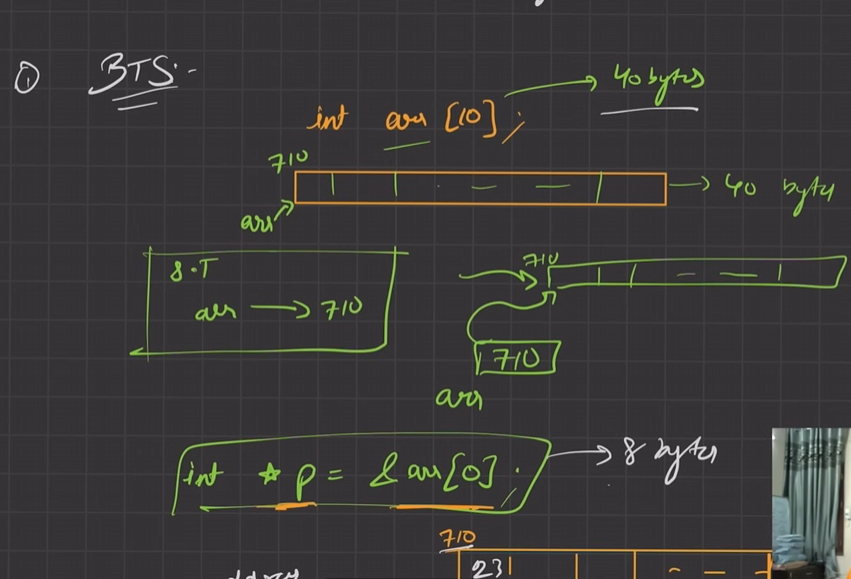 ① BTS:-
int arr [10] ; → 40 bytes
710
→ 40 byte
arr
S.T
710
arr → 710
710
arr
int * p = & arr[0] ; → 8 bytes
710
231